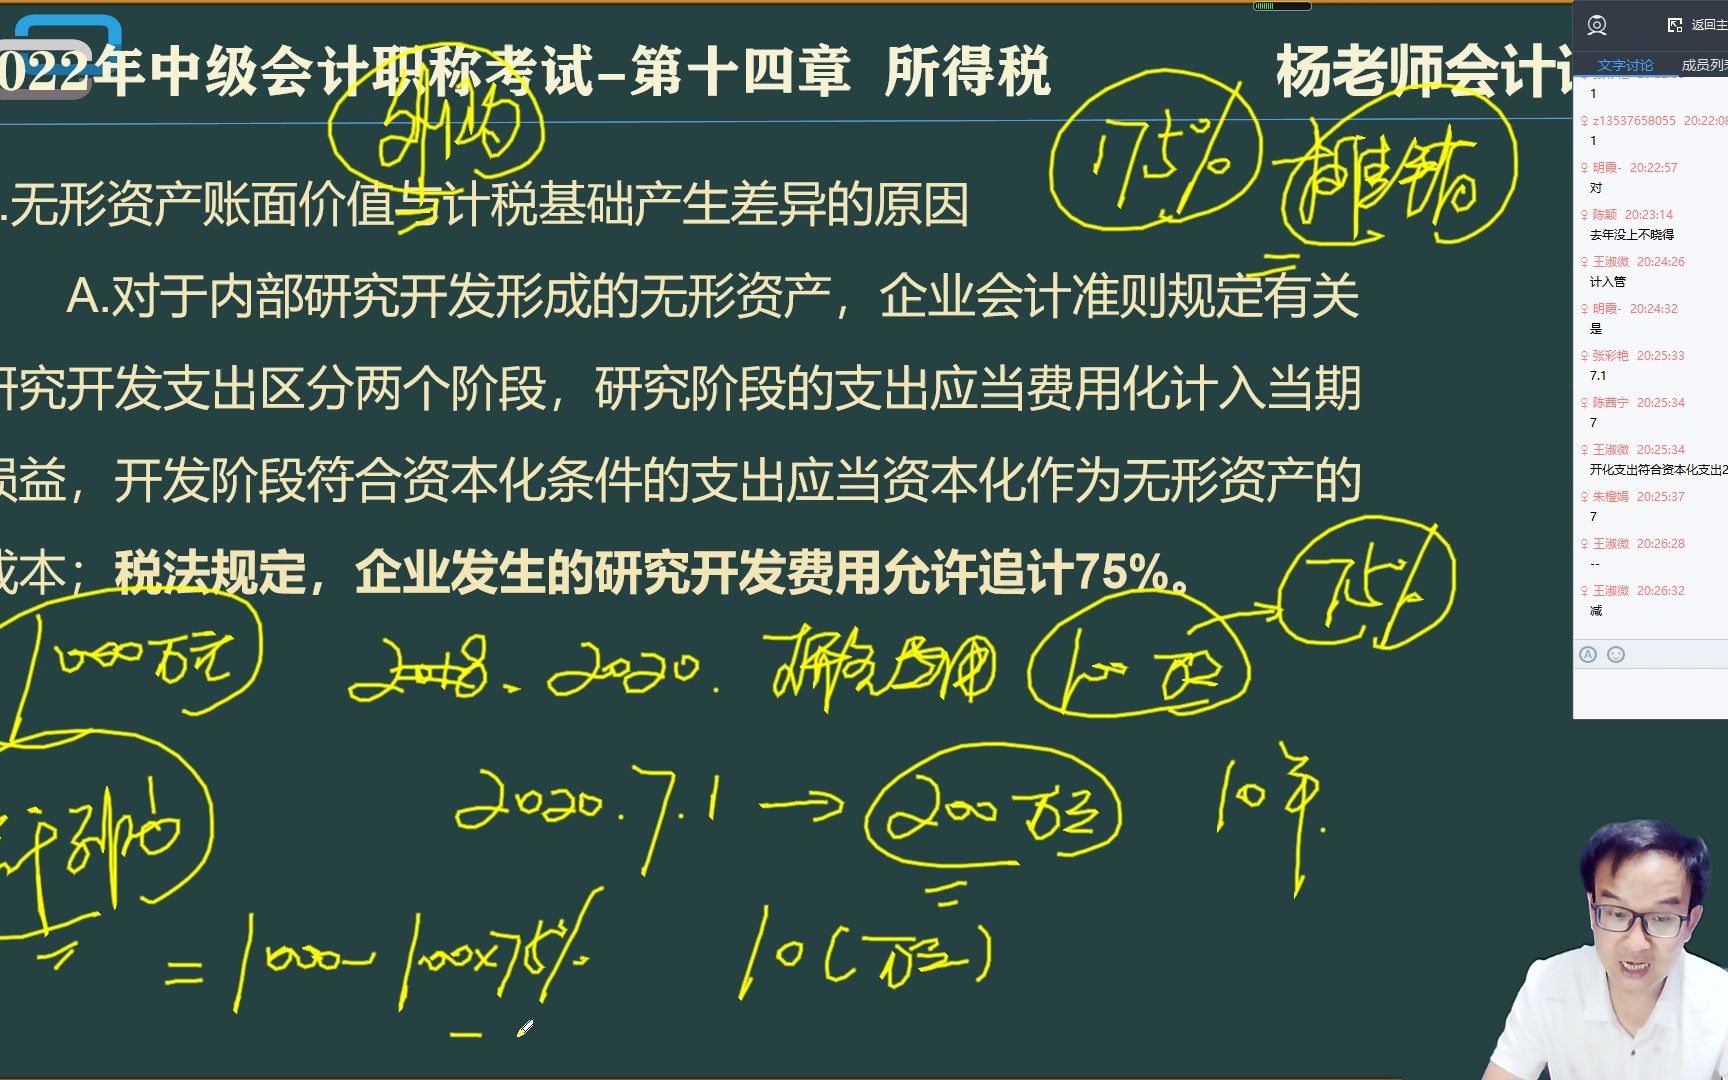 022年中级会计职称考试-第十四章 所得税
杨老师会计
.无形资产账面价值与计税基础产生差异的原因
175%
摊销
A.对于内部研究开发形成的无形资产，企业会计准则规定有关
研究开发支出区分两个阶段，研究阶段的支出应当费用化计入当期
损益，开发阶段符合资本化条件的支出应当资本化作为无形资产的
成本；税法规定，企业发生的研究开发费用允许追计75%。
75%
1000万元
2018. 2020. 研发费用 100万
2020.7.1 → 200万元 10年.
=1000-100×75% 10(万元)
返回主
文字讨论 成员列
1
z13537658055 20:22:08
1
明霞- 20:22:57
对
陈颖 20:23:14
去年没上不晓得
王淑微 20:24:26
计入管
明霞- 20:24:32
是
张彩艳 20:25:33
7.1
陈茜宁 20:25:34
7
王淑微 20:25:34
开化支出符合资本化支出2
朱橙娟 20:25:37
7
王淑微 20:26:28
--
王淑微 20:26:32
减